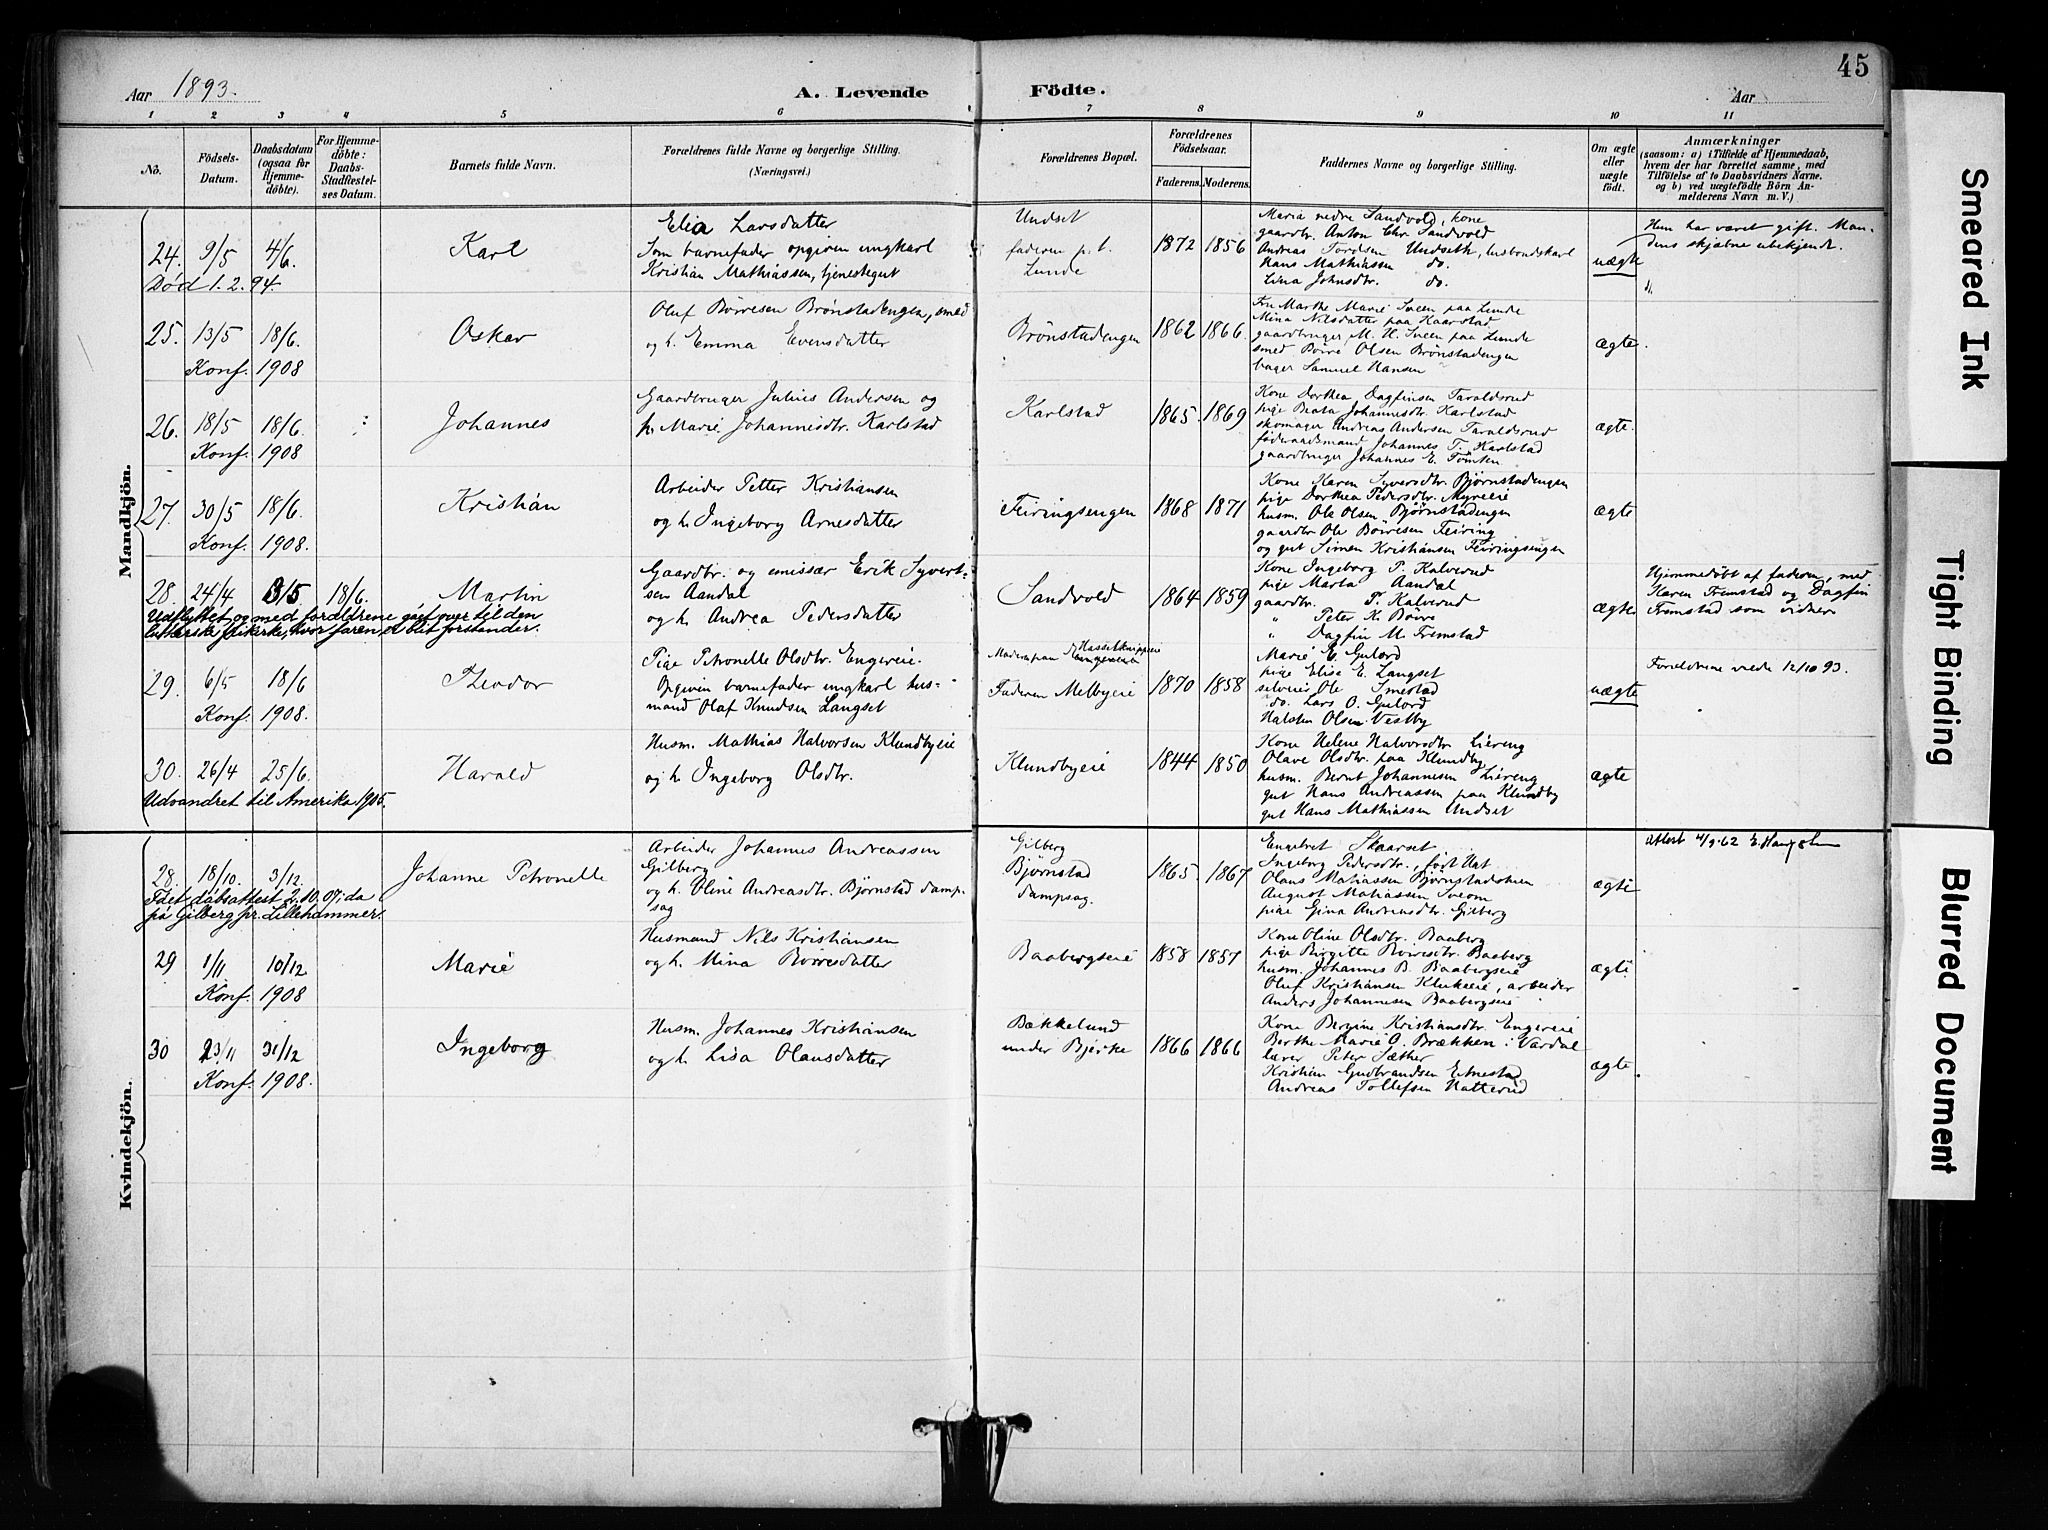 45
Aar 1893.
A. Levende Födte.
Aar
1 2 3 4 5 6 7 8 9 10 11
No.
Födsels-
Datum.
Daabsdatum
(ogsaa for
Hjemme-
döbte).
For Hjemme-
döbte:
Daabs-
Stadfæstel-
ses Datum.
Barnets fulde Navn.
Forældrenes fulde Navne og borgerlige Stilling.
(Næringsvei.)
Forældrenes Bopæl.
Forældrenes
Födselsaar.
Faderens. Moderens.
Faddernes Navne og borgerlige Stilling.
Om ægte
eller
uægte
födt.
Anmærkninger
(saasom: a) i Tilfælde af Hjemmedaab,
hvem der har forrettet samme, med
Tilföielse af to Daabsvidners Navne.
og b) ved uægtefödte Börn An-
melderens Navn m. V.)
Mandkjön.
24. 9/5 4/6.
Død 1. 2. 94.
Karl
Elia Larsdatter
Som barnefader opgiven ungkarl
Kristian Mathiassen, tjenestegut
Undset
faderen p. t.
Lunde
1872 1856
Maria nedre Sandvold, kone
gaardbr. Anton Chr. Sandvold
Andreas Torolsen Undseth, husbondskarl
Hans Mathiassen do.
Lina Johnsdtr. do.
uægte
Hun har været gift. Man-
dens skjæbne ubekjendt.
25. 13/5 18/6.
Konf. 1908
Oskar
Oluf Børresen Brønstadengen, smed
og h. Emma Evensdatter
Brønstadengen
1862 1866
Fru Marthe Marie Sveen paa Lunde
Mina Nilsdatter paa Kaarstad
gaardbruger M. H. Sveen paa Lunde
smed Børre Olsen Brønstadengen
bager Samuel Hansen
ægte.
26. 18/5 18/6.
Konf. 1908
Johannes
Gaardbruger Julius Andersen og
h. Marie Johannesdtr. Karlstad
Karlstad
1865. 1869
Kone Dorthea Dagfinsen Taraldsrud
pige Beata Johannesdtr. Karlstad
skomager Andreas Andersen Taraldsrud
føderaadsmand Johannes T. Karlstad
gaardbruger Johannes E. Tomten
ægte.
27. 30/5 18/6.
Konf. 1908.
Kristian
Arbeider Petter Kristiansen
og h. Ingeborg Arnesdatter
Feiringsengen
1868 1871
Kone Karen Syversdtr. Bjørnstadengen
pige Dorthea Pedersdtr. Myreeie
husm. Ole Olsen Bjørnstadengen
gaardbr. Ole Børresen Feiring
og gut Simen Kristiansen Feiringsengen
ægte
28. 24/4 3/5 18/6.
Martin
Udflyttet og med foreldrene gåt over til den
lutherske frikirke, hvor faren er blit forstander.
Gaardbr. og emissær Erik Syvert-
sen Aandal
og h. Andrea Pedersdatter
Sandvold
1864 1859
Kone Ingeborg P. Kalverud
pige Marta Aandal
gaardbr. P. Kalverud
" Peter K. Børre
" Dagfin M. Fremstad
ægte
Hjemmedøbt af faderen, med
Karen Fremstad og Dagfin
Fremstad som vidner
29. 6/5 18/6
Konf. 1908.
Theodor
Pige Petronelle Olsdtr. Engereie.
Opgiven barnefader ungkarl hus-
mand Olaf Knudsen Langset
Faderen Melbyeie
1870 1858
Marie E. Gulord
pige Elise E. Langset
selveier Ole Smestad
do. Lars O. Gulord
Halsten Olsen Vestby
uægte
Foreldrene viede 12/10 93.
30. 26/4 25/6.
Udvandret til Amerika 1905.
Harald
Husm. Mathias Halvorsen Klundbyeie
og h. Ingeborg Olsdtr.
Klundbyeie
1844 1850
Kone Helene Halvorsdtr. Liereng
Olave Olsdtr. paa Klundby
husm. Bernt Johannesen Liereng
gut Hans Andreassen paa Klundby
gut Hans Mathiassen Undset
ægte
Kvindekjön.
28. 18/10. 3/12.
Fået dåbsattest 2.10.07; da
på Gilberg pr. Lillehammer.
Johanne Petronelle
Arbeider Johannes Andreassen
Gilberg
og h. Oline Andreasdtr. Bjørnstad damp-
sag
Gilberg
Bjørnstad
dampsag.
1865. 1867
Engebret Skaarset
Ingeborg Pedersdtr., født Hat
Olaus Matiassen Bjørnstadstuen
August Matiassen Sveom
pige Gina Andreasdtr. Gilberg
ægte
29 1/11 10/12
Konf. 1908
Marie
Husmand Nils Kristiansen
og h. Mina Børresdatter
Baabergseie
1858 1857
Kone Oline Olsdtr. Baaberg
pige Birgitte Børresdtr. Baaberg
husm. Johannes B. Baabergseie
Oluf Kristiansen Klukeeie, arbeider
Anders Johannesen Baabergseie
ægte
30 23/11 31/12
Konf. 1908.
Ingeborg
Husm. Johannes Kristiansen
og h. Lisa Olausdatter
Bækkelund
under Bjerke
1866 1866
Kone Bergine Kristiansdtr. Engereie
Berthe Marie O. Brækken i Vardal
lærer Peter Sæther
Kristian Gudbrandsen Ednestad
Andreas Tollefsen Hatterud
ægte
Smeared Ink
Tight Binding
Blurred Document